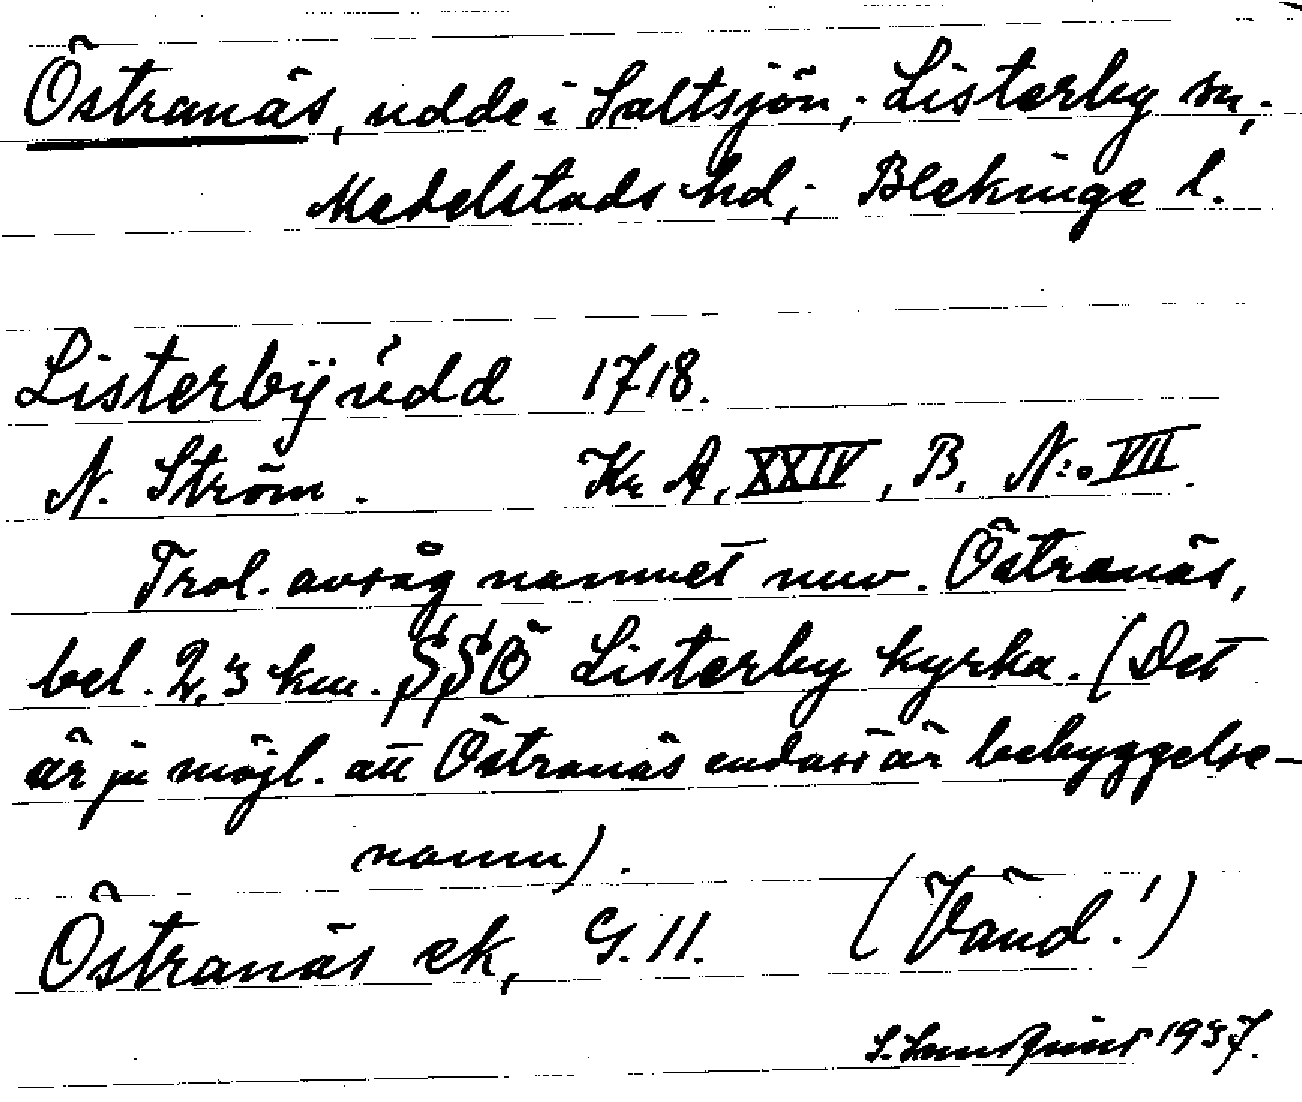 Östranäs, udde i Saltsjön; Listerby sn;
Medelstads hd; Blekinge l.
Listerbÿ udd 1718.
N. Ström. Kr A, XXIV, B, N:o VII.
Trol. avsåg namnet nuv. Östranäs,
bel. 2,3 km. SSÖ Listerby kyrka. (Det
är ju möjl. att Östranäs endast är bebyggelse-
namn).
Östranäs ek, G. 11. (Vänd!)
S. Lundquist 1937.